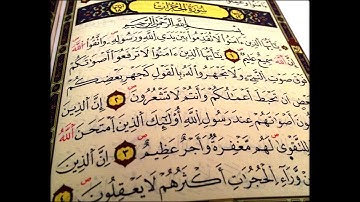 سُورَةُ الحُجُرَاتِ
بِسْمِ اللَّهِ الرَّحْمَٰنِ الرَّحِيمِ
يَٰٓأَيُّهَا الَّذِينَ ءَامَنُوا۟ لَا تُقَدِّمُوا۟ بَيْنَ يَدَىِ اللَّهِ وَرَسُولِهِۦ وَاتَّقُوا۟ اللَّهَ
اللَّهَ سَمِيعٌ عَلِيمٌ ١ يَٰٓأَيُّهَا الَّذِينَ ءَامَنُوا۟ لَا تَرْفَعُوٓا۟ أَصْوَٰتَكُمْ
فَوْقَ صَوْتِ النَّبِىِّ وَلَا تَجْهَرُوا۟ لَهُۥ بِالْقَوْلِ كَجَهْرِ بَعْضِكُمْ
أَن تَحْبَطَ أَعْمَٰلُكُمْ وَأَنتُمْ لَا تَشْعُرُونَ ٢ إِنَّ الَّذِينَ
أَصْوَٰتَهُمْ عِندَ رَسُولِ اللَّهِ أُو۟لَٰٓئِكَ الَّذِينَ امْتَحَنَ اللَّهُ
لِلتَّقْوَىٰ لَهُم مَّغْفِرَةٌ وَأَجْرٌ عَظِيمٌ ٣ إِنَّ الَّذِينَ
وَرَآءِ الْحُجُرَٰتِ أَكْثَرُهُمْ لَا يَعْقِلُونَ ٤